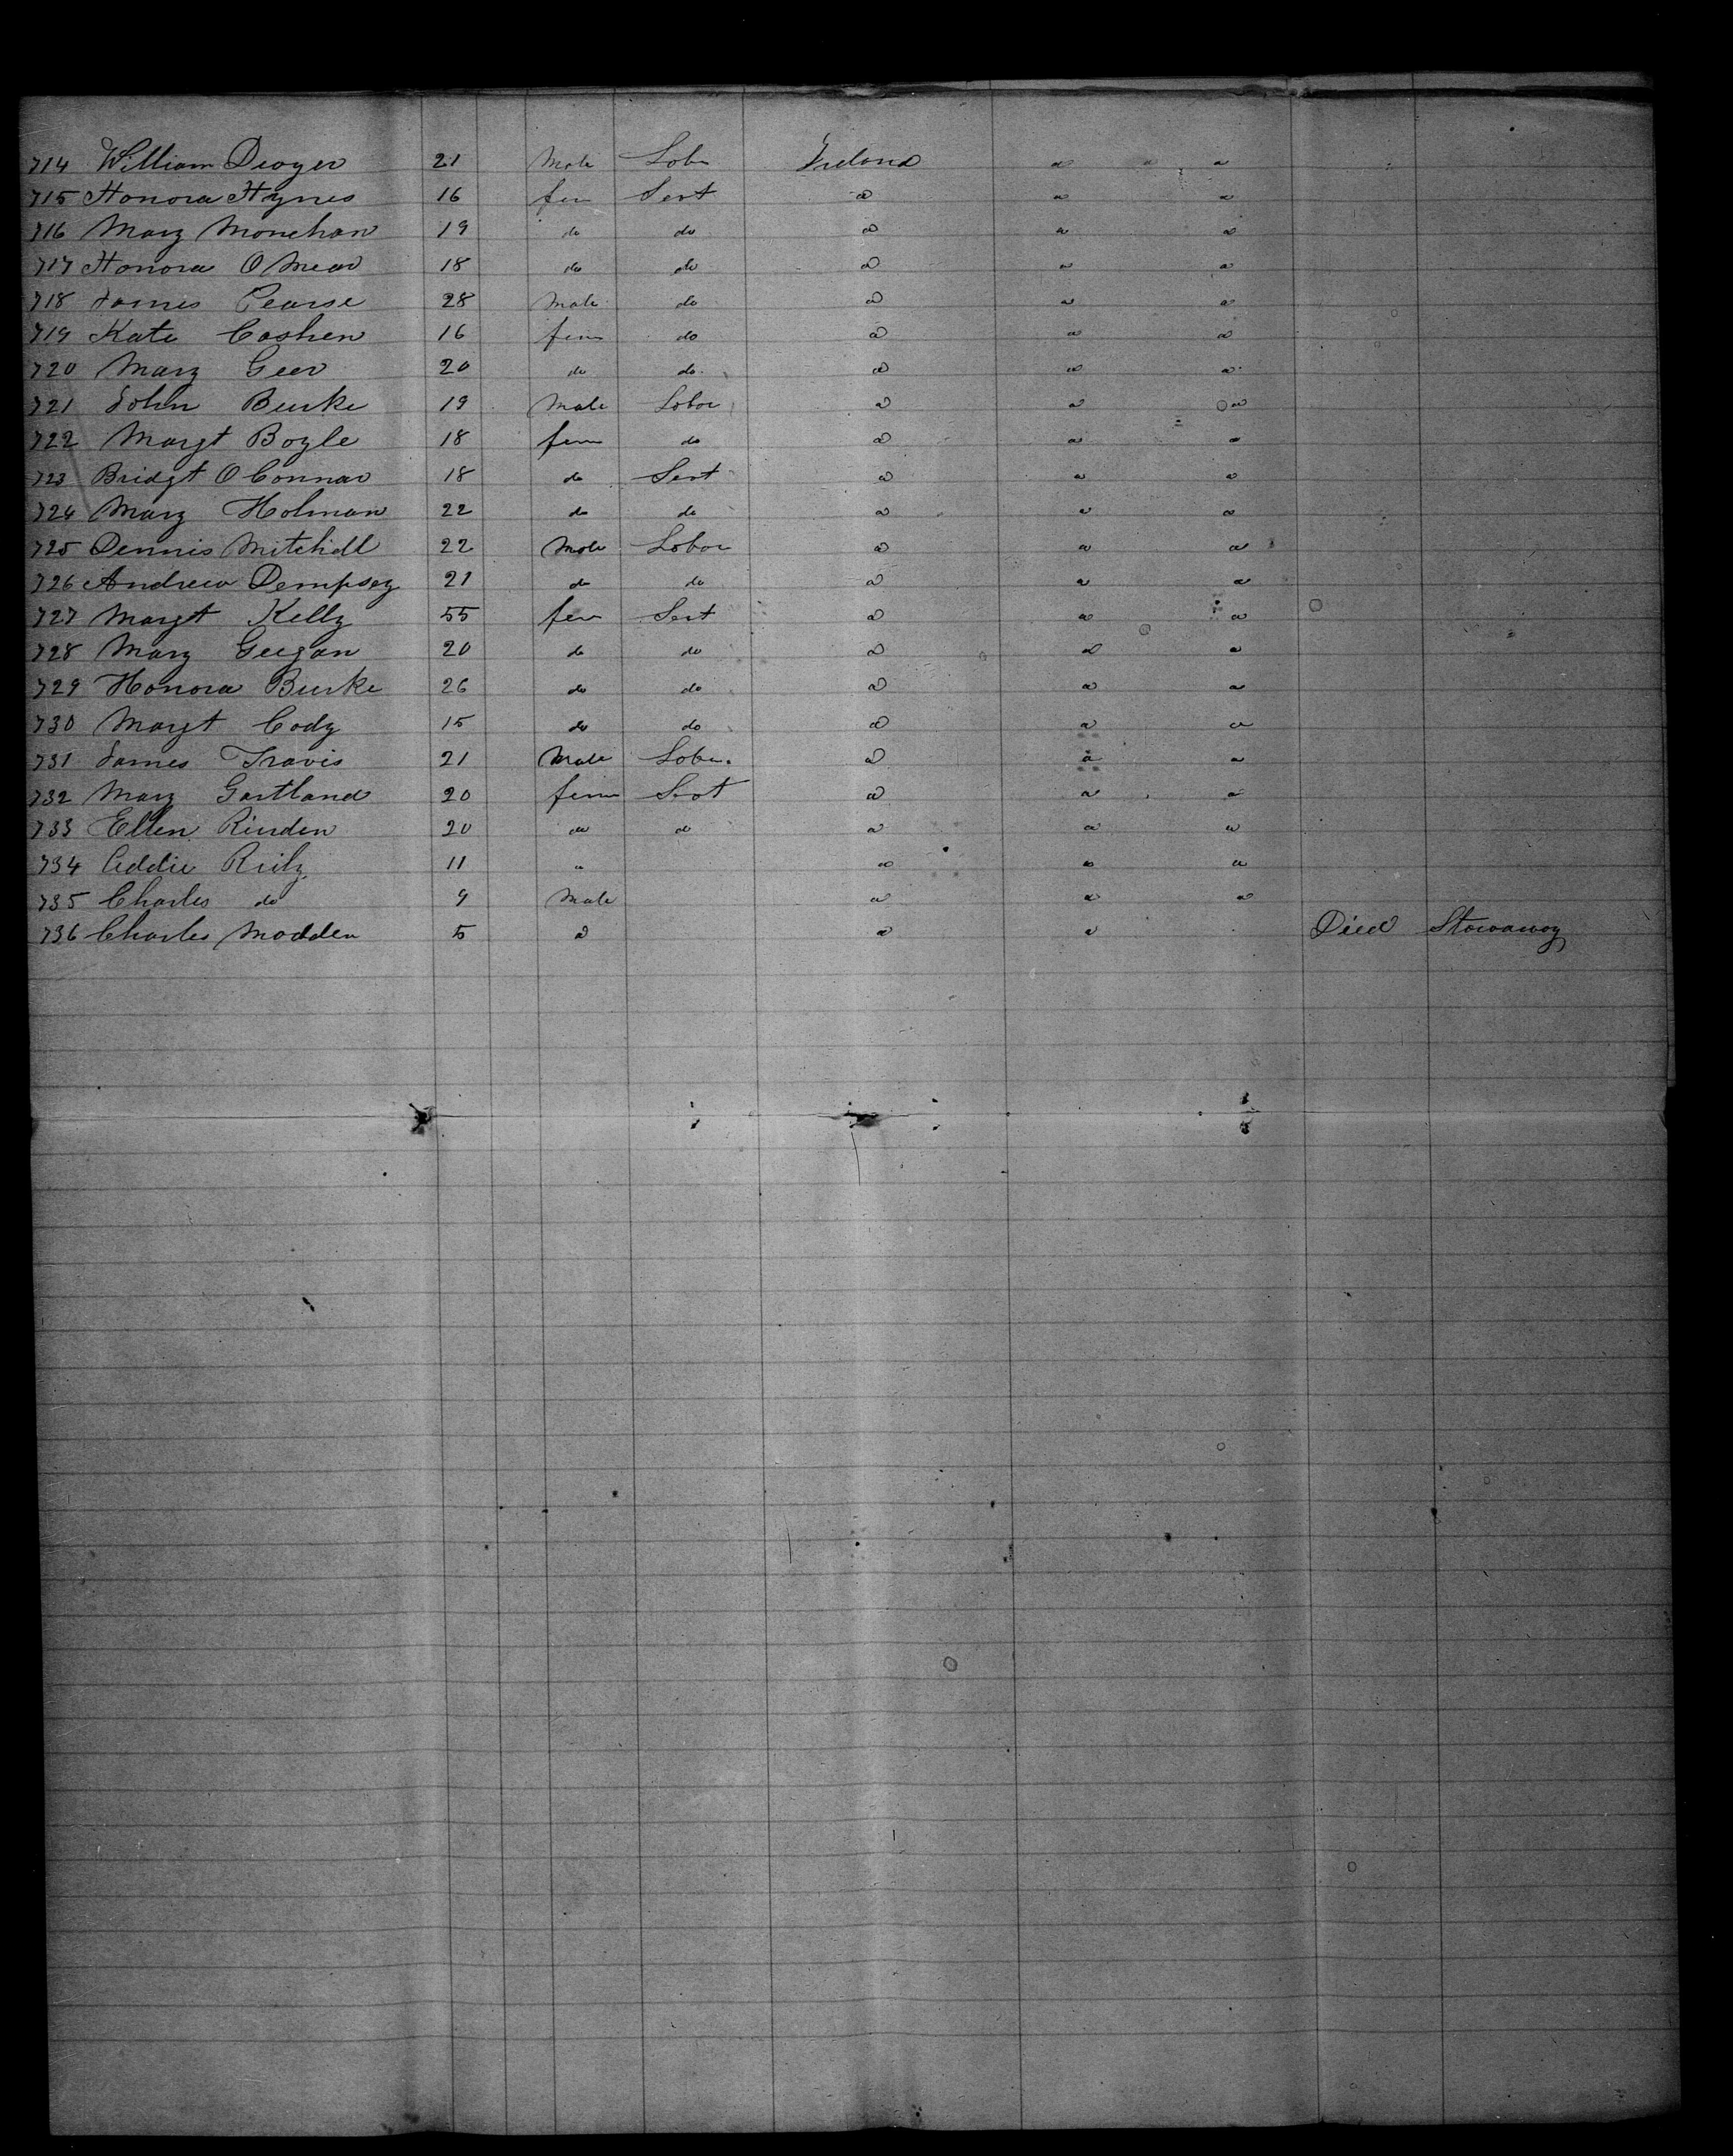 714 William Dwyer 21 Male Labr Ireland " " "
715 Honora Hynes 16 fem Sevt do " "
716 Mary Monehan 19 do do do " "
717 Honora O Mear 18 do do do " "
718 James Pearse 28 Male do do " "
719 Kate Cashen 16 fem do do " "
720 Mary Geer 20 do do do " "
721 John Burke 19 Male Labor do " "
722 Margt Boyle 18 fem do do " "
723 Bridgt O Connar 18 do Sevt do " "
724 Mary Holman 22 do do do " "
725 Dennis Mitchell 22 Male Labor do " "
726 Andrew Dempsey 21 do do do " "
727 Margt Kelly 55 fem Sevt do " "
728 Mary Geegan 20 do do do " "
729 Honora Burke 26 do do do " "
730 Margt Cody 15 do do do " "
731 James Travis 21 Male Labr. do " "
732 Mary Gartland 20 fem Sevt do " "
733 Ellen Rinden 20 do do do " "
734 Addie Reily 11 " " " "
735 Charles do 9 Male " " "
736 Charles Madden 5 do " " Died Stowaway